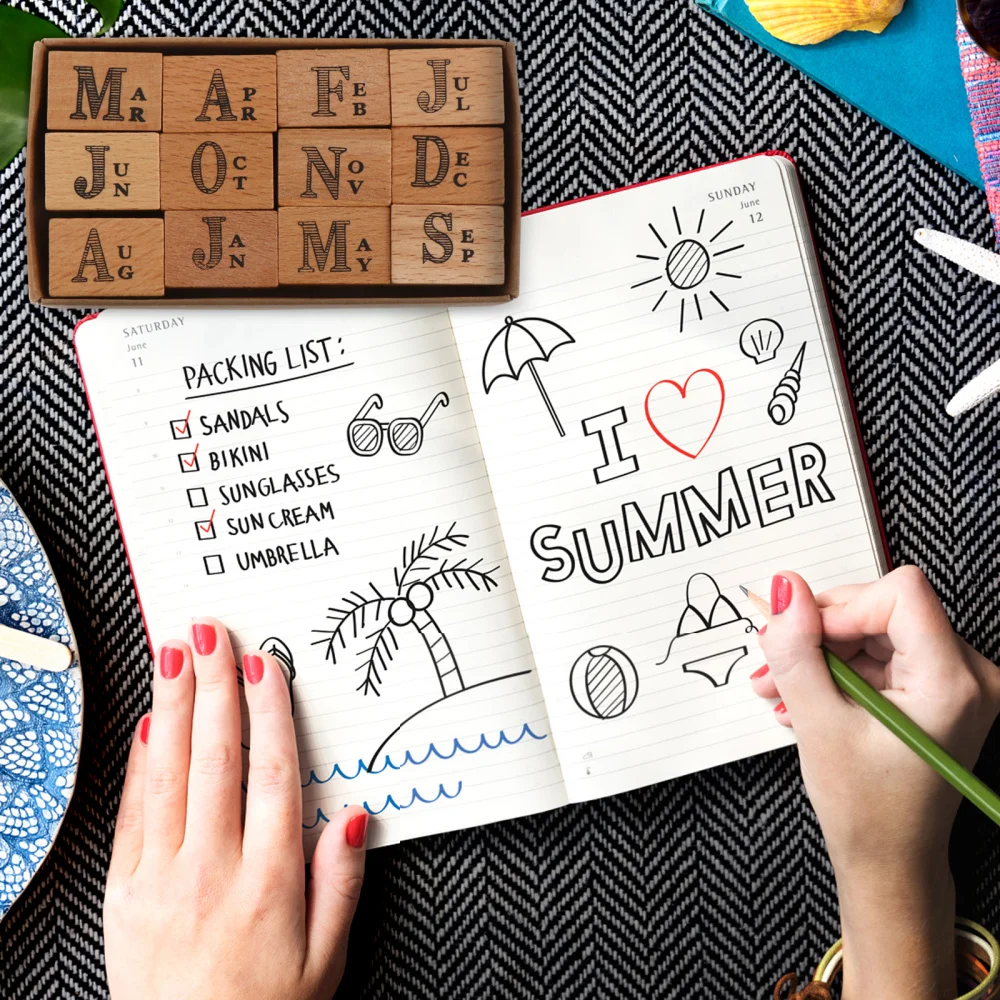 MAR APR FEB JUL
JUN OCT NOV DEC
AUG JAN MAY SEP
SATURDAY
June
11
PACKING LIST:
SANDALS
BIKINI
SUNGLASSES
SUN CREAM
UMBRELLA
SUNDAY
June
12
I
SUMMER